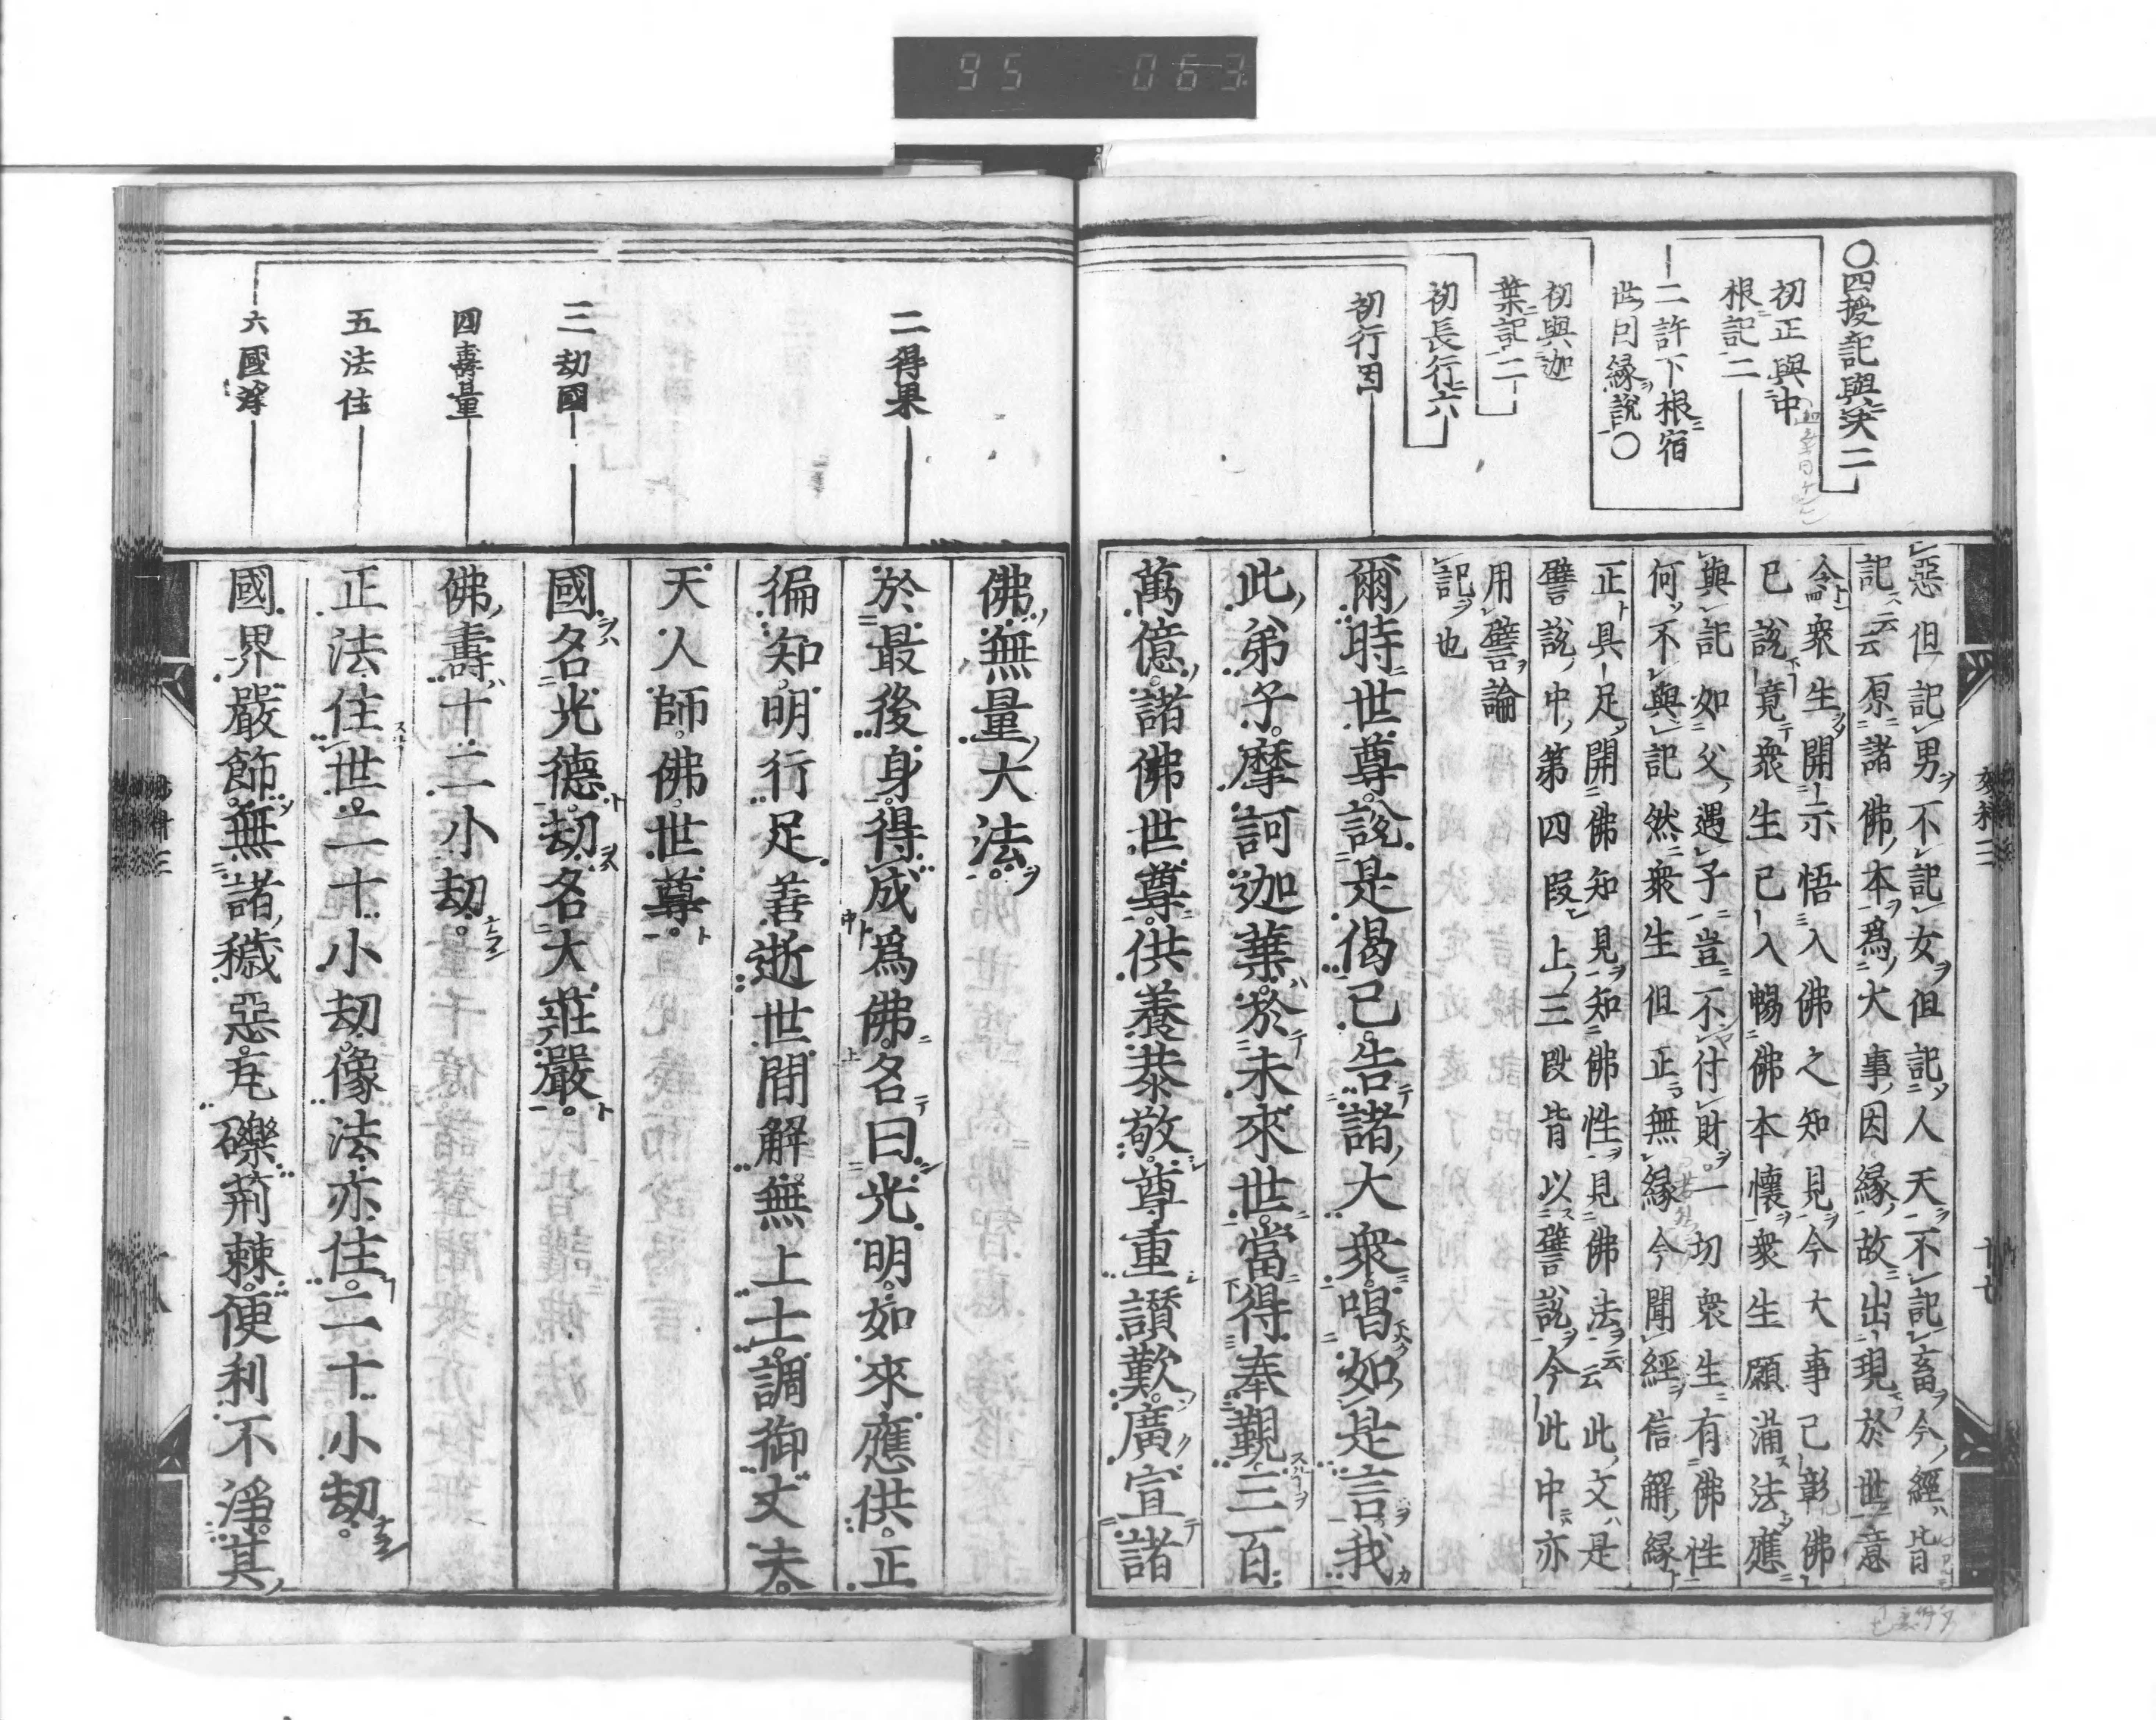 95 063
○四授記與决二
初正與中
根記二
二許下根宿
世因縁説○
初與迦
葉記二
初長行六
初行因
惡但記男不記女但記人天不記畜今經皆
記云云原諸佛本爲大事因縁故出現於世意
令衆生開示悟入佛之知見今大事已彰佛
已說竟衆生已入暢佛本懷衆生願滿法應
與記如父遇子豈不付財一切衆生有佛性
何不與記然衆生但正無縁今聞經信解縁
正具足開佛知見知佛性見佛法云云此文是
譬說中第四段上三段皆以譬說今此中亦
用譬論
記也
爾時世尊説是偈已告諸大衆唱如是言我
此弟子摩訶迦葉於未來世當得奉覲三百
萬億諸佛世尊供養恭敬尊重讃歎廣宣諸
十七
二得果
三劫國
四壽量
五法住
六國淨
佛無量大法
於最後身得成爲佛名曰光明如來應供正
徧知明行足善逝世間解無上士調御丈夫
天人師佛世尊
國名光德劫名大莊嚴
佛壽十二小劫
正法住世二十小劫像法亦住二十小劫
國界嚴飾無諸穢惡瓦礫荊棘便利不淨其